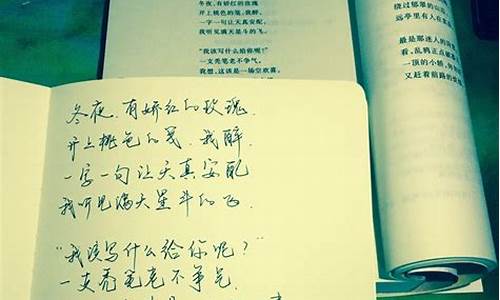 冬夜,有娇红的玫瑰
开上桃色的笺,我醉,
一字一句让天真安配
我听见满天星斗的飞。
"我该写什么给你呢?"
一支秃笔老不争气。
我想,这该是一场空欢喜。
绕过郁翠的山
远亭里有人在
最是那迷人的
看,乱鸦正点破
一顶的小轿,
又赶着前路的
冬夜,有娇红的玫瑰,
开上桃色的笺,我醉
一字一句让天真安配
我听见满天星斗的飞
"我该写什么给你呢?"
一支秃笔老不争气